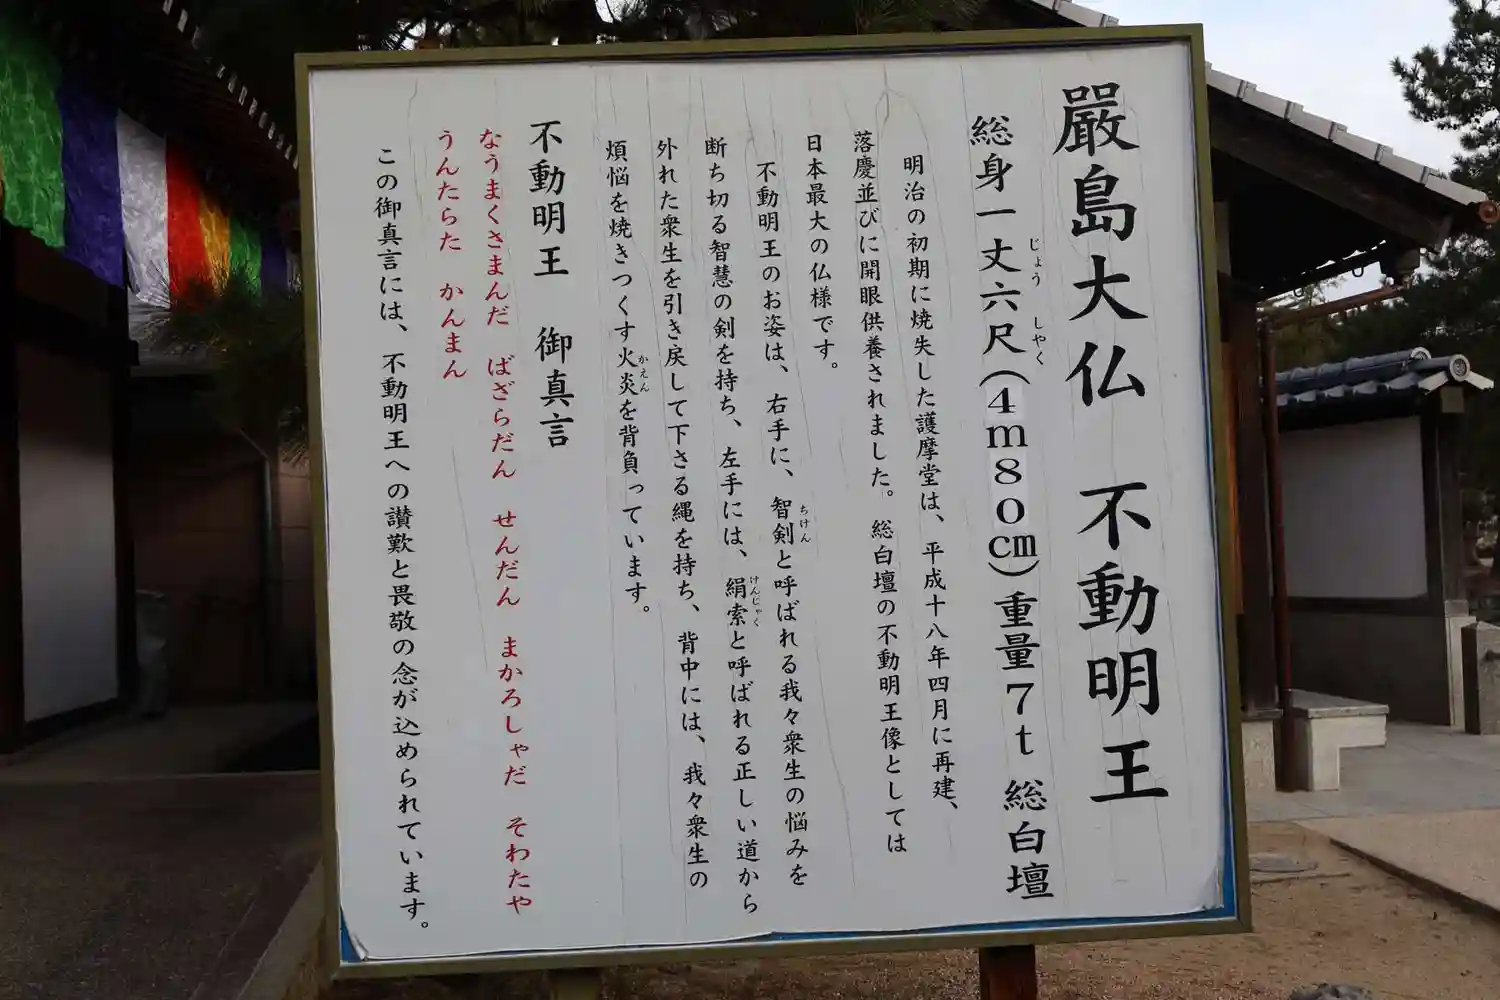 嚴島大仏 不動明王
総身一丈六尺(4m80cm)重量7t 総白壇
じょう しゃく
明治の初期に焼失した護摩堂は、平成十八年四月に再建、
落慶並びに開眼供養されました。総白壇の不動明王像としては
日本最大の仏様です。
不動明王のお姿は、右手に、智剣と呼ばれる我々衆生の悩みを
ちけん
断ち切る智慧の剣を持ち、左手には、絹索と呼ばれる正しい道から
けんじゃく
外れた衆生を引き戻して下さる縄を持ち、背中には、我々衆生の
煩悩を焼きつくす火炎を背負っています。
かえん
不動明王 御真言
なうまくさまんだ ばざらだん せんだん まかろしゃだ そわたや
うんたらた かんまん
この御真言には、不動明王への讃歎と畏敬の念が込められています。